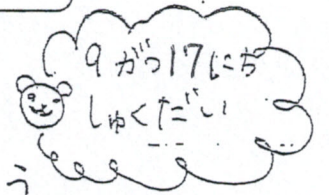 9がつ17にち
しゅくだい
う